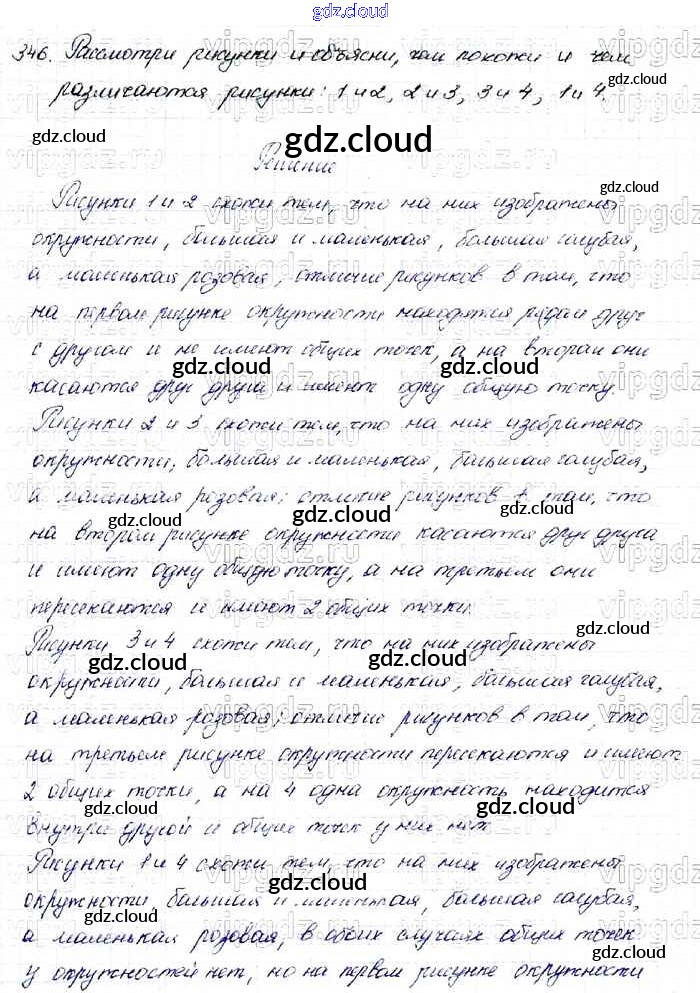 gdz.cloud
346. Рассмотри рисунки и объясни, чем похожи и чем
различаются рисунки: 1 и 2, 2 и 3, 3 и 4, 1 и 4.
Решение
Рисунки 1 и 2 схожи тем, что на них изображены
окружности, большая и маленькая, большая голубая,
а маленькая розовая, отличие рисунков в том, что
на первом рисунке окружности находятся рядом друг
с другом и не имеют общих точек, а на втором они
касаются друг друга и имеют одну общую точку.
Рисунки 2 и 3 схожи тем, что на них изображены
окружности, большая и маленькая, большая голубая,
а маленькая розовая; отличие рисунков в том, что
на втором рисунке окружности касаются друг друга
и имеют одну общую точку, а на третьем они
пересекаются и имеют 2 общих точки.
Рисунки 3 и 4 схожи тем, что на них изображены
окружности, большая и маленькая, большая голубая,
а маленькая розовая; отличие рисунков в том, что
на третьем рисунке окружности пересекаются и имеют
2 общих точки, а на 4 одна окружность находится
внутри другой и общих точек у них нет.
Рисунки 1 и 4 схожи тем, что на них изображены
окружности, большая и маленькая, большая голубая,
а маленькая розовая, в обоих случаях общих точек
у окружностей нет, но на первом рисунке окружности